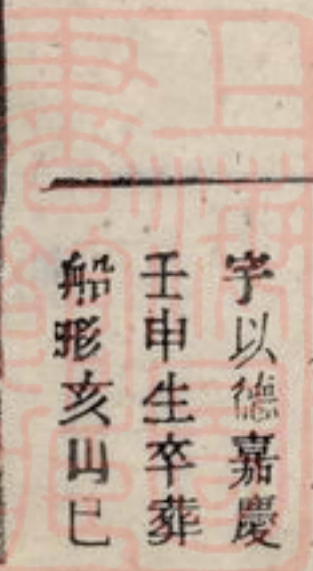 字以德嘉慶
壬申生卒葬
船形亥山巳